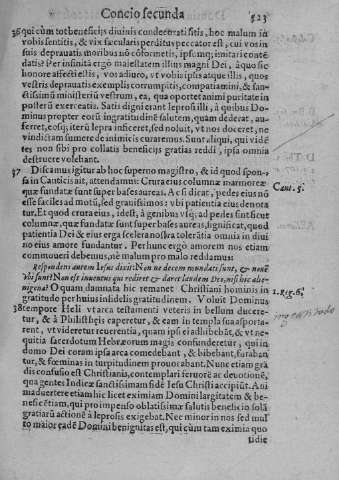 Concio secunda 523
36 qui cùm tot beneficijs diuinis condecorati sitis, hoc malum in
vobis sentitis, & vix sæcularis perditus peccator est, cui vos in
suis deprauatis moribus nō cōformetis, ipsumq; imitari conté
datis? Per infinitā ergò maiestatem illius magni Dei, à quo sic
honore affecti estis, vos adiuro, vt vobis ipsis atque illis, quos
vestris deprauatis exemplis corrumpitis, compatiamini, & san-
ctissimū ministeriū vestrum, ea, qua oportet animi puritate in
posterū exerceatis. Satis digni erant leprosi illi, à quibus Do-
minus propter eorū ingratitudinē salutem, quam dederat, au-
ferret, eosq; iterū lepra inficeret, sed noluit, vt nos doceret, ne
vindictam sumere de inimicis curaremus. Sunt aliqui, qui vidē
tes non sibi pro collatis beneficijs gratias reddi, ipsa omnia
destruere volebant.
37 Discamus igitur ab hoc superno magistro, & id quod spon-
sa in Canticis ait, attendamus: Crura eius columnæ marmoreæ
quæ fundatæ sunt super bases aureas. Ac si dicat, pedes eius nō
esse faciles ad motū, sed grauissimos: vbi patientia eius denota
tur. Et quod crura eius, id est, à genibus vsq; ad pedes sint sicut
columnæ, quæ fundatæ sunt super bases aureas, significat, quod
patientia Dei & eius erga scelera nostra tolerātia omnia in diui
no eius amore fundantur. Per hunc ergò amorem nos etiam
commoueri debemus, nè malum pro malo reddamus:
Respondens autem Iesus dixit: Nonne decem mundati sunt, & nouē
vbi sunt? Non est inuentus qui rediret & daret laudem Deo, nisi hic alie-
nigena? O quam damnata hic remanet Christiani hominis in
gratitudo per huius infidelis gratitudinem. Voluit Dominus
38 tempore Heli vt arca testamenti veteris in bellum ducere-
tur, & à Philisthæis caperetur, & eam in templa sua asporta-
rent, vt videretur reuerentia, quam ipsi exhibebāt, & vt ne-
quitia sacerdotum Hebræorum magis confunderetur, qui in
domo Dei coram ipsa arca comedebant, & bibebant, furaban
tur, & fœminas in turpitudinem prouocabant. Nunc etiam grā
dis confusio est Christianis, contemplari feruorē ac deuotionē,
qua gentes Indicæ sanctissimam fidē Iesu Christi accipiūt. Ani
maduertere etiam hic licet eximiam Domini largitatem & be-
neficētiam, qui pro impenso oblatissimæ salutis beneficio solā
gratiarū actionē à leprosis exigebat. Nec minor in nos sed mul
tò maior eadē Domini benignitas est, qui cùm tam eximia quo
tidie
Cant. 5.
1. Reg. 6.